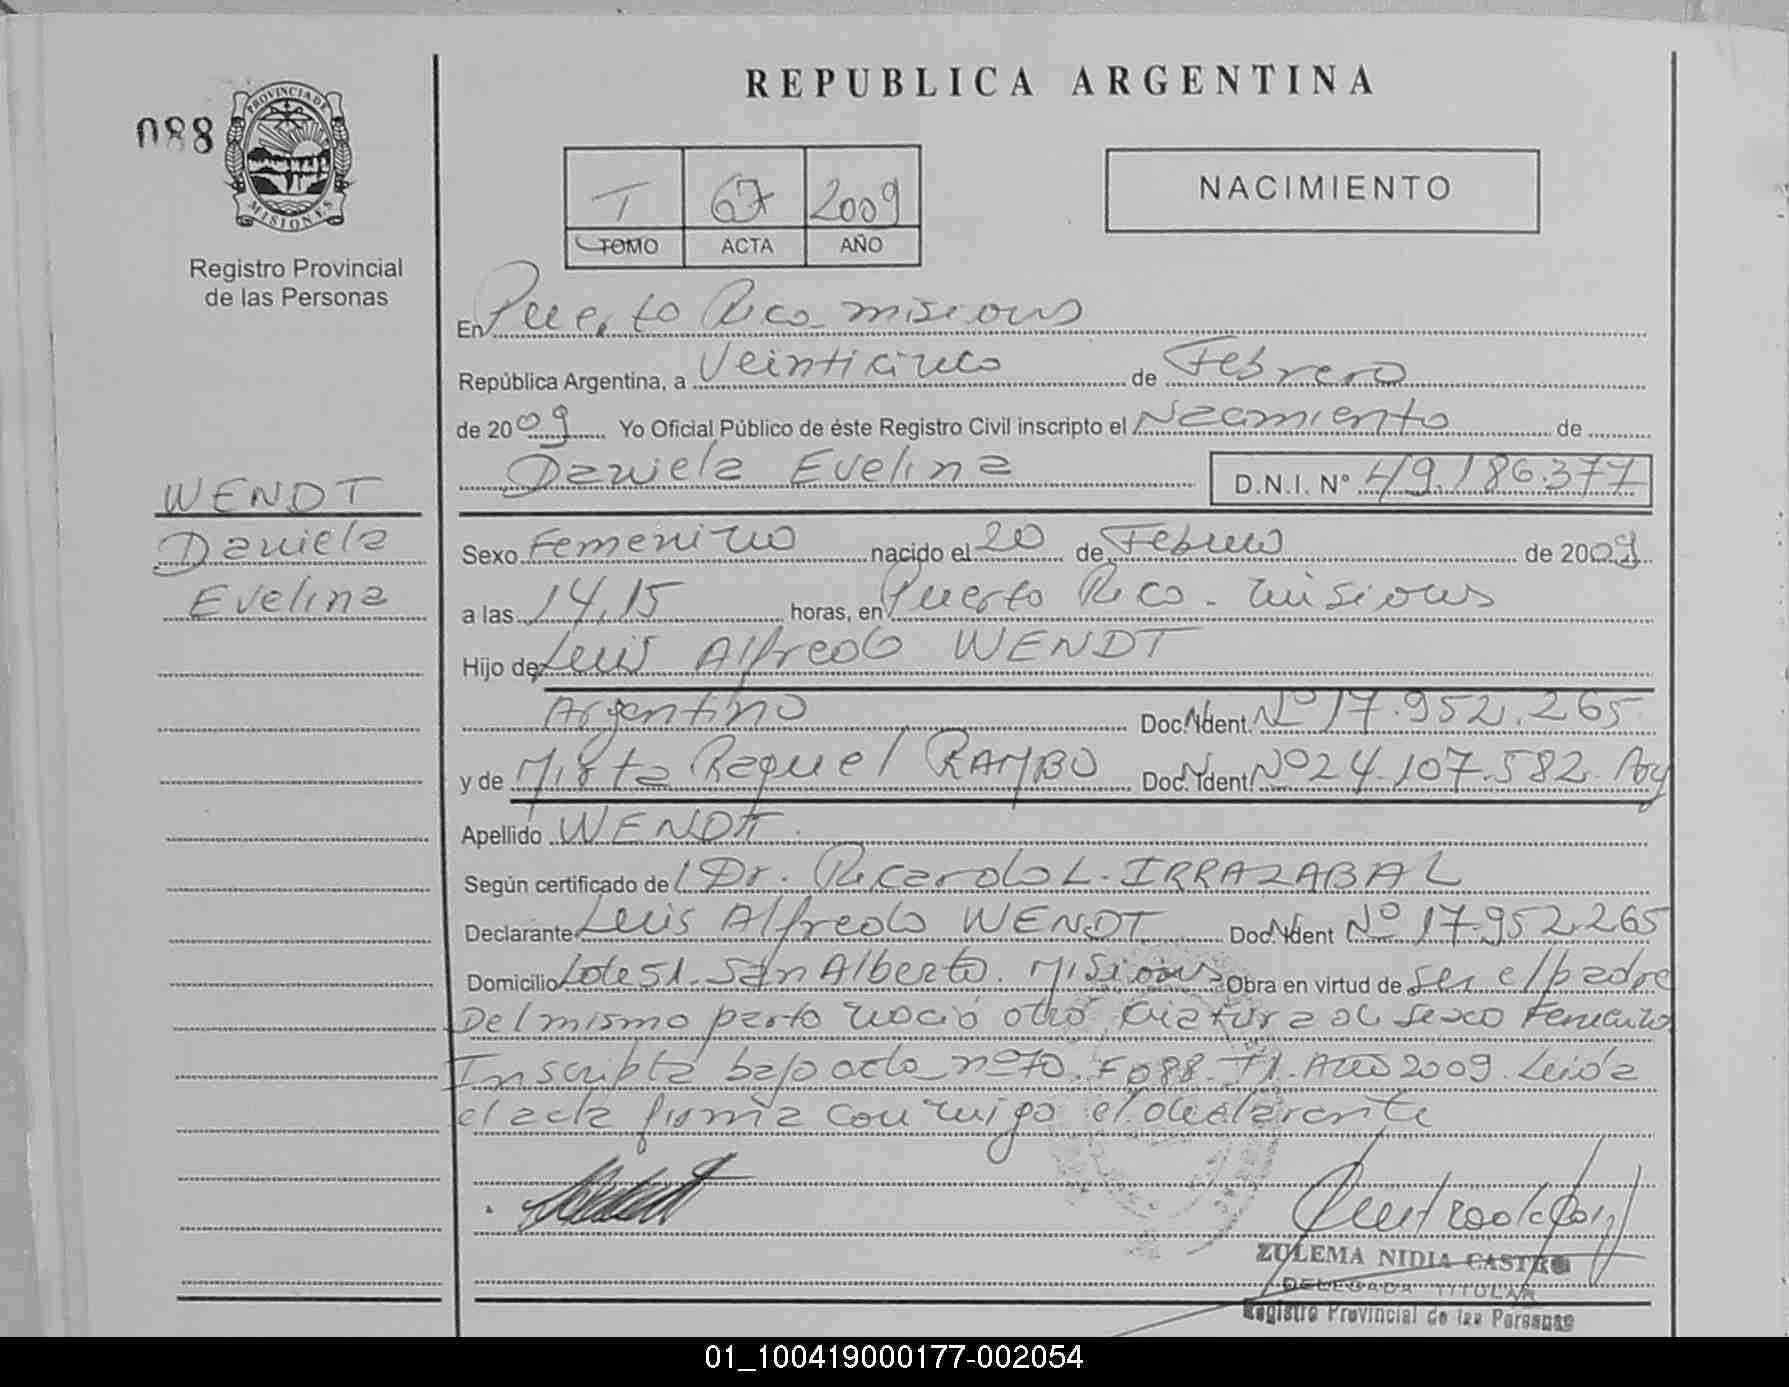 REPUBLICA ARGENTINA
088
PROVINCIA DE
MISIONES
Registro Provincial
de las Personas
T 67 2009
TOMO ACTA AÑO
NACIMIENTO
En Puerto Rico misiones
República Argentina, a Veinticinco de Febrero
de 2009 Yo Oficial Público de éste Registro Civil inscripto el Nacimiento de
Daniela Evelina D.N.I. Nº 49.186.377
WENDT
Daniela
Evelina
Sexo Femenino nacido el 20 de Febrero de 2009
a las 14,15 horas, en Puerto Rico - misiones
Hijo de Luis Alfredo WENDT
Argentino Doc. Ident. Nº 17.952.265
y de Mirta Raquel RAMBO Doc. Ident. Nº 24.107.582. Arg
Apellido WENDT.
Según certificado de Dr. Ricardo L. IRRAZABAL
Declarante Luis Alfredo WENDT Doc. Ident Nº 17.952.265
Domicilio Lote 51. San Alberto. Misiones Obra en virtud de ser el padre
Del mismo parto nació otra criatura de sexo Femenino
Inscripta bajo acta nº 70. Fº 88. T1. Año 2009. Leída
el acta firma conmigo el declarante
ZULEMA NIDIA CASTRO
DELEGADA TITULAR
Registro Provincial de las Personas
01_100419000177-002054